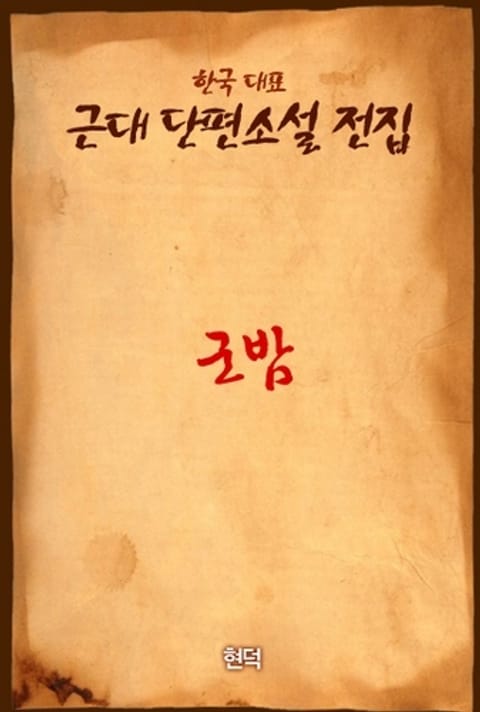 한국 대표
근대 단편소설 전집
군밤
현덕